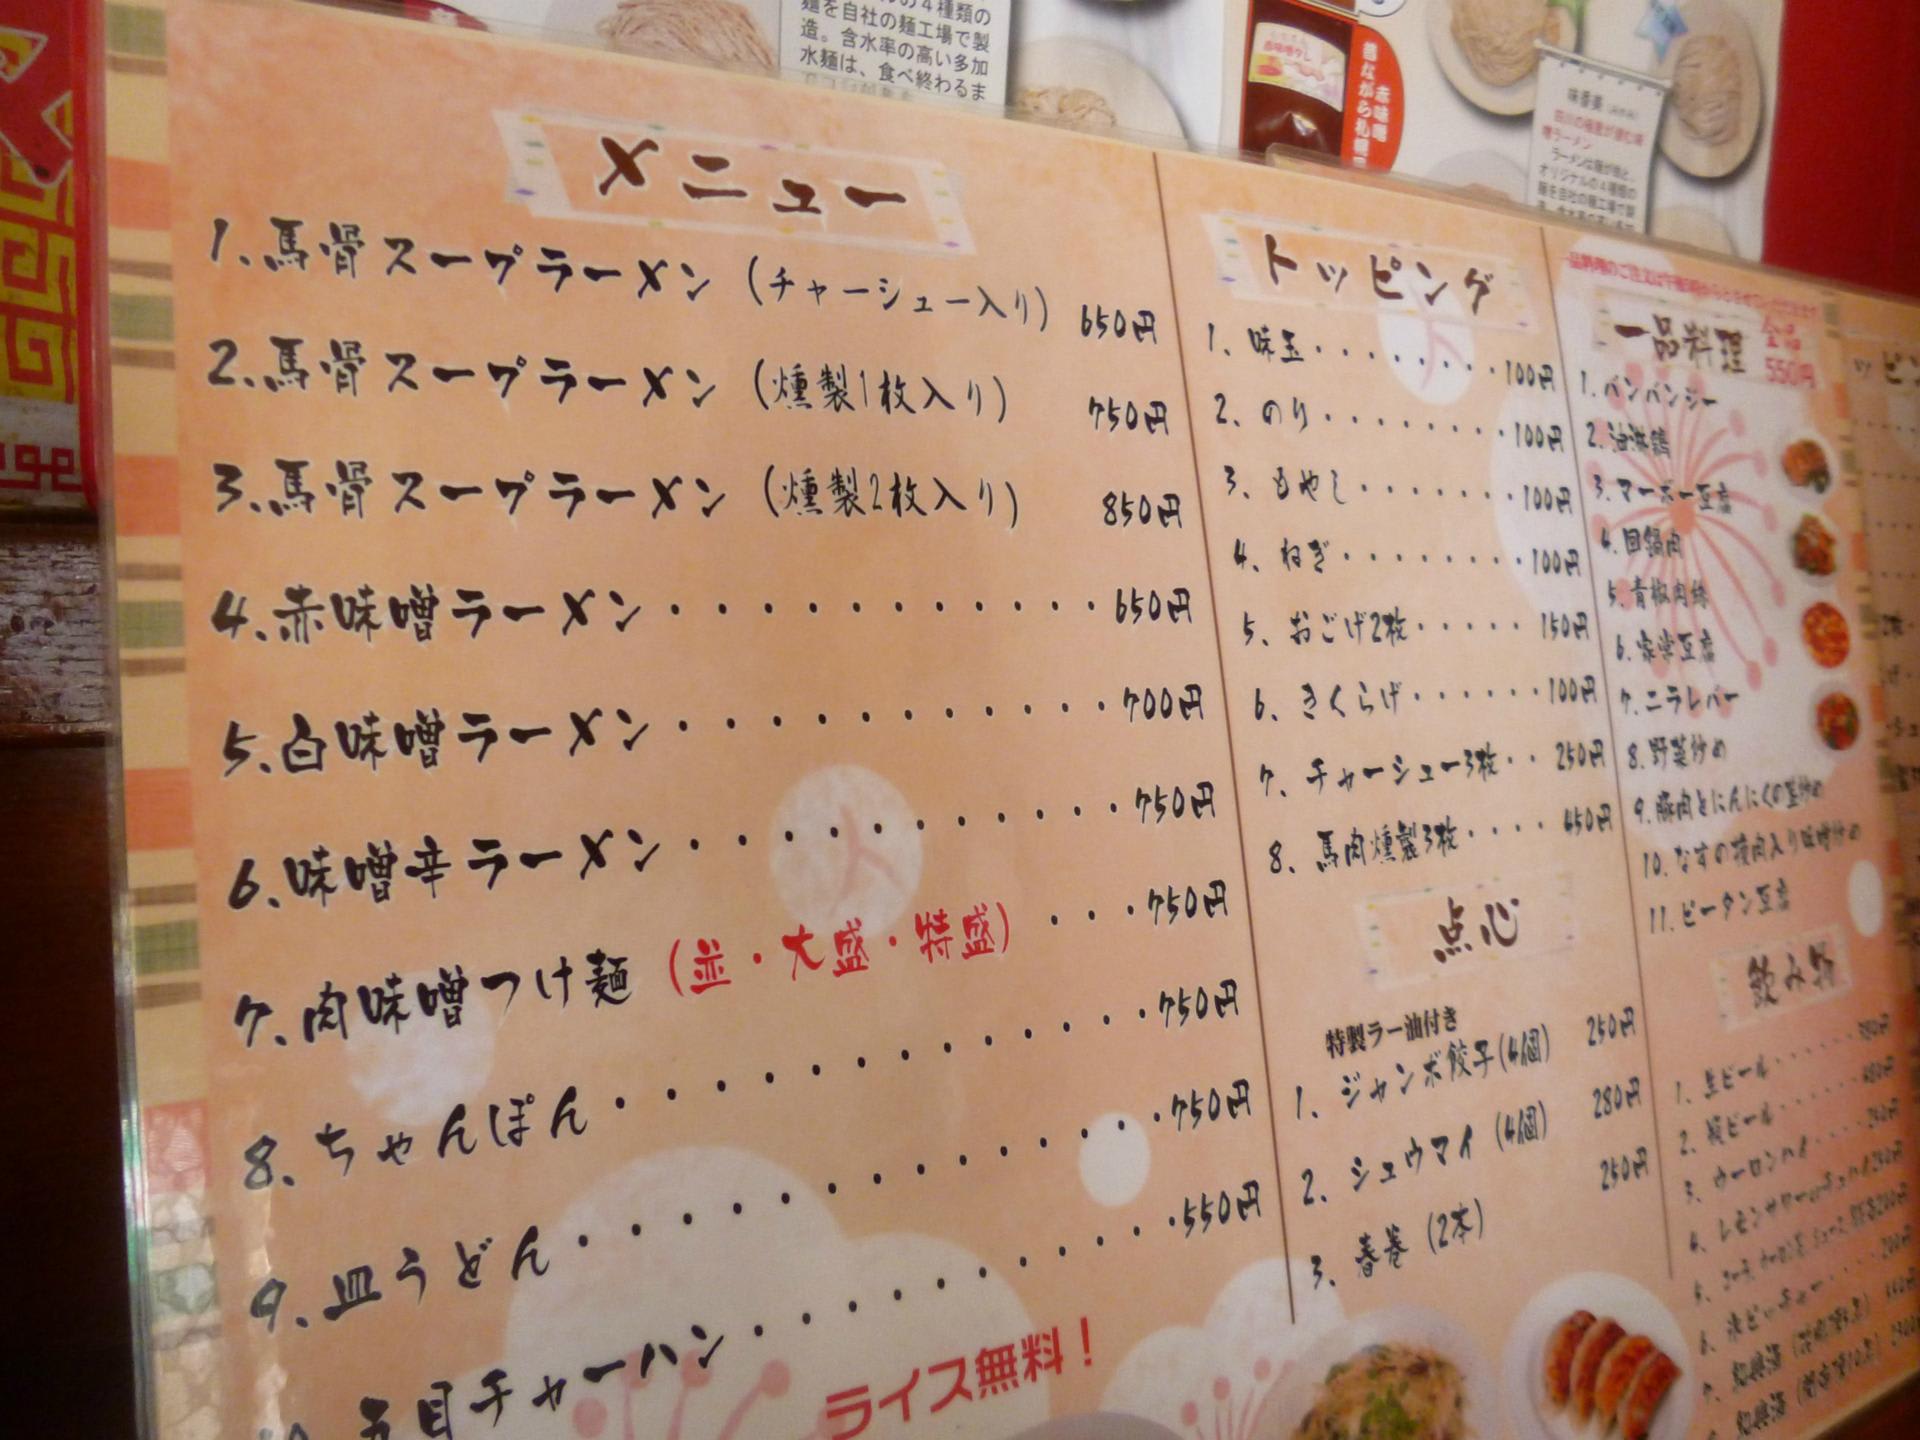 の4種類の
麺を自社の麺工場で製
造。含水率の高い多加
水麺は、食べ終わるま
赤味噌
昔ながら札幌
味香美
ラーメンは麺が命と、
オリジナルの4種類の
麺を自社の麺工場で製
メニュー
1.馬骨スープラーメン (チャーシュー入り) 650円
2.馬骨スープラーメン (燻製1枚入り) 750円
3.馬骨スープラーメン (燻製2枚入り) 850円
4.赤味噌ラーメン・・・・・・・・・・・・650円
5.白味噌ラーメン・・・・・・・・・・・・700円
6.味噌辛ラーメン・・・・・・・・・・・・750円
7.肉味噌つけ麺 (並・大盛・特盛)・・・750円
8.ちゃんぽん・・・・・・・・・・・・・・750円
9.皿うどん・・・・・・・・・・・・・・・750円
10.五目チャーハン・・・・・・・・・・・550円
ライス無料!
トッピング
1、味玉・・・・・・・・100円
2、のり・・・・・・・・100円
3、もやし・・・・・・・100円
4、ねぎ・・・・・・・・100円
5、おこげ2枚・・・・・150円
6、きくらげ・・・・・・100円
7、チャーシュー3枚・・250円
8、馬肉燻製3枚・・・・450円
点心
特製ラー油付き
1、ジャンボ餃子(4個) 250円
2、シュウマイ (4個) 280円
3、春巻 (2本) 250円
一品料理 全品
550円
1.バンバンジー
2.油淋鶏
3.マーボー豆腐
4.回鍋肉
5.青椒肉絲
6.家常豆腐
7.ニラレバー
8.野菜炒め
9.豚肉とにんにくの茎炒め
10.なすの挽肉入り味噌炒め
11.ピータン豆腐
飲み物
1、生ビール
2、瓶ビール
3、ウーロンハイ
4、レモンサワーorチュハイ
6、氷ピッチャー
7、紹興酒
紹興酒